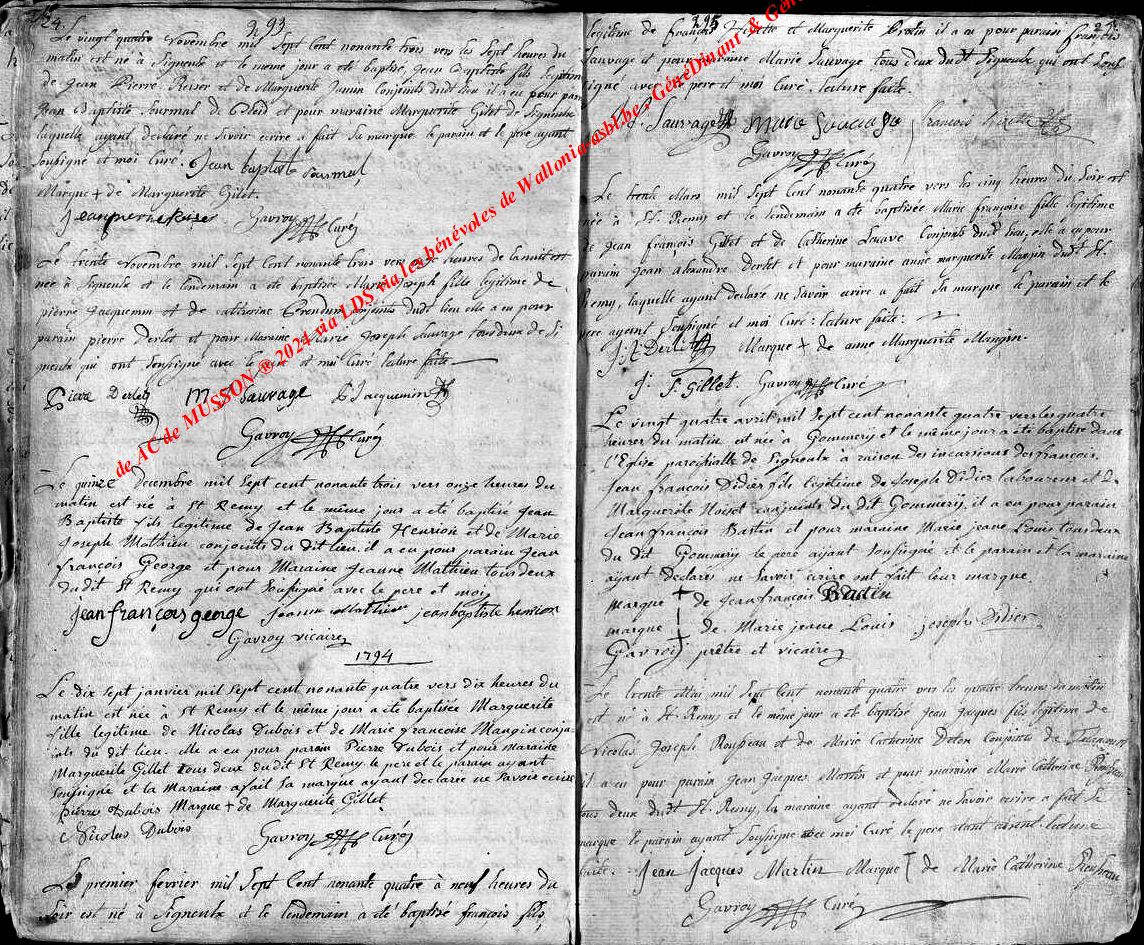 24.
293
Le vingt quatre Novembre mil Sept Cent nonante trois vers les Sept heures du
matin est né à Signeulx et le meme jour a eté baptisé, Jean Baptiste fils legitime
de Jean Pierre et de Marguerite conjoints dudt lieu il a eu pour parain
Jean Baptiste et pour maraine Marguerite Gilet de Signeulx
laquelle ayant declaré ne Savoir ecrire a fait Sa marque le parain et le pere ayant
Soussigné et moi Curé. Jean baptiste
Marque + de Marguerite Gilet.
Jeanpierre Gavroy Curé
Le trente Novembre mil Sept Cent nonante trois vers heures de la nuit est
née à Signeulx et le lendemain a eté baptisée Marie Joseph fille legitime de
pierre Jacquemin et de catherine conjoints dudt lieu elle a eu pour
parain pierre Derlet et pour Maraine Marie Joseph Sauvage tous deux de Si
gneulx qui ont Soussigné avec le pere et moi Curé lecture faite
Piere Derlet M J Sauvage P Jacquemin
Gavroy Curé
Le quinze Decembre mil Sept cent nonante trois vers onze heures du
matin est né à St Remy et le même jour a eté baptisé Jean
Baptiste fils legitime de Jean Baptiste Henrion et de Marie
Joseph Mathieu conjoints du dit lieu. il a eu pour parain Jean
françois George et pour Maraine Jeanne Mathieu tous deux
du dit St Remy qui ont Soussigné avec le pere et moy
Jean françois george Jeanne Mathieu jean baptiste henrion
Gavroy vicaire
1794
Le dix Sept janvier mil Sept cent nonante quatre vers dix heures du
matin est née à St Remy et le même jour a eté baptisée Marguerite
fille legitime de Nicolas Dubois et de Marie francoise Mangin conjo
ints du dit lieu. elle a eu pour parain Pierre Dubois et pour Maraine
Marguerite Gillet tous deux du dit St Remy. le pere et le parain ayant
Soussigné et la Maraine a fait Sa marque ayant declarée ne Savoir ecrire
pierre Dubois Marque + de Marguerite Gillet
Nicolas Dubois Gavroy Curé
Le premier fevrier mil Sept Cent nonante quatre à neuf heures du
Soir est né à Signeulx et le lendemain a été baptisé françois fils
295
legitime de françois et Marguerite il a eu pour parain françois
Sauvage et pour maraine Marie Sauvage tous deux dudt Signeulx qui ont Sous
signé avec le pere et moi Curé. lecture faite.
f. Sauvage Marie Sauvage françois
Gavroy Curé
Le trente Mars mil Sept Cent nonante quatre vers les cinq heures du Soir est
née à St. Remy et le lendemain a eté baptisée Marie françoise fille legitime
de Jean françois Gillet et de Catherine Conjoints dudt lieu, elle a eu pour
parain Jean alexandre Derlet et pour maraine anne marguerite Mangin dudt St.
Remy, laquelle ayant declaré ne Savoir ecrire a fait Sa marque le parain et le
pere ayent Soussigné et moi Curé: lecture faite.
J: A Derlet Marque + de anne Marguerite Mangin.
J: F: Gillet. Gavroy Curé
Le vingt quatre avril mil Sept cent nonante quatre vers les quatre
heures du matin est né à Gommery et le même jour a eté baptisé dans
l'Eglise paroichialle de Signeulx à raison des incursions des françois.
Jean françois Didier fils legitime de Joseph Didier laboureur et de
Marguerite conjoints du dit Gommery, il a eu pour parain
Jean françois Bastin et pour maraine Marie jeane Louis tous deux
du dit Gommery le pere ayant Soussigné et le parain et la maraine
ayant declarés ne Savoir ecrire ont fait leur marque
marque + de Jean françois Bastin
marque + de Marie jeane Louis joseph Didier
Gavroy prêtre et vicaire
Le trente Mai mil Sept Cent nonante quatre vers les quatre heures du matin
est né à St. Remy et le meme jour a eté baptisé Jean Jacques fils legitime de
Nicolas Joseph et de Marie Catherine Conjoints de
il a eu pour parain Jean Jacques Martin et pour maraine Marie Catherine
tous deux dudt St. Remy, la maraine ayant declaré ne Savoir ecrire a fait Sa
marque le parain ayant Soussigné avec moi Curé le pere etant absent lecture
faite. Jean Jacques Martin Marque de Marie Catherine
Gavroy Curé
de AC de MUSSON @ 2024 via LDS via les bénévoles de Wallonia-asbl.be, GénéDinant &